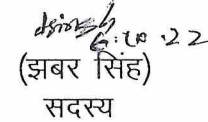 6.10.22
(झबर सिंह)
सदस्य